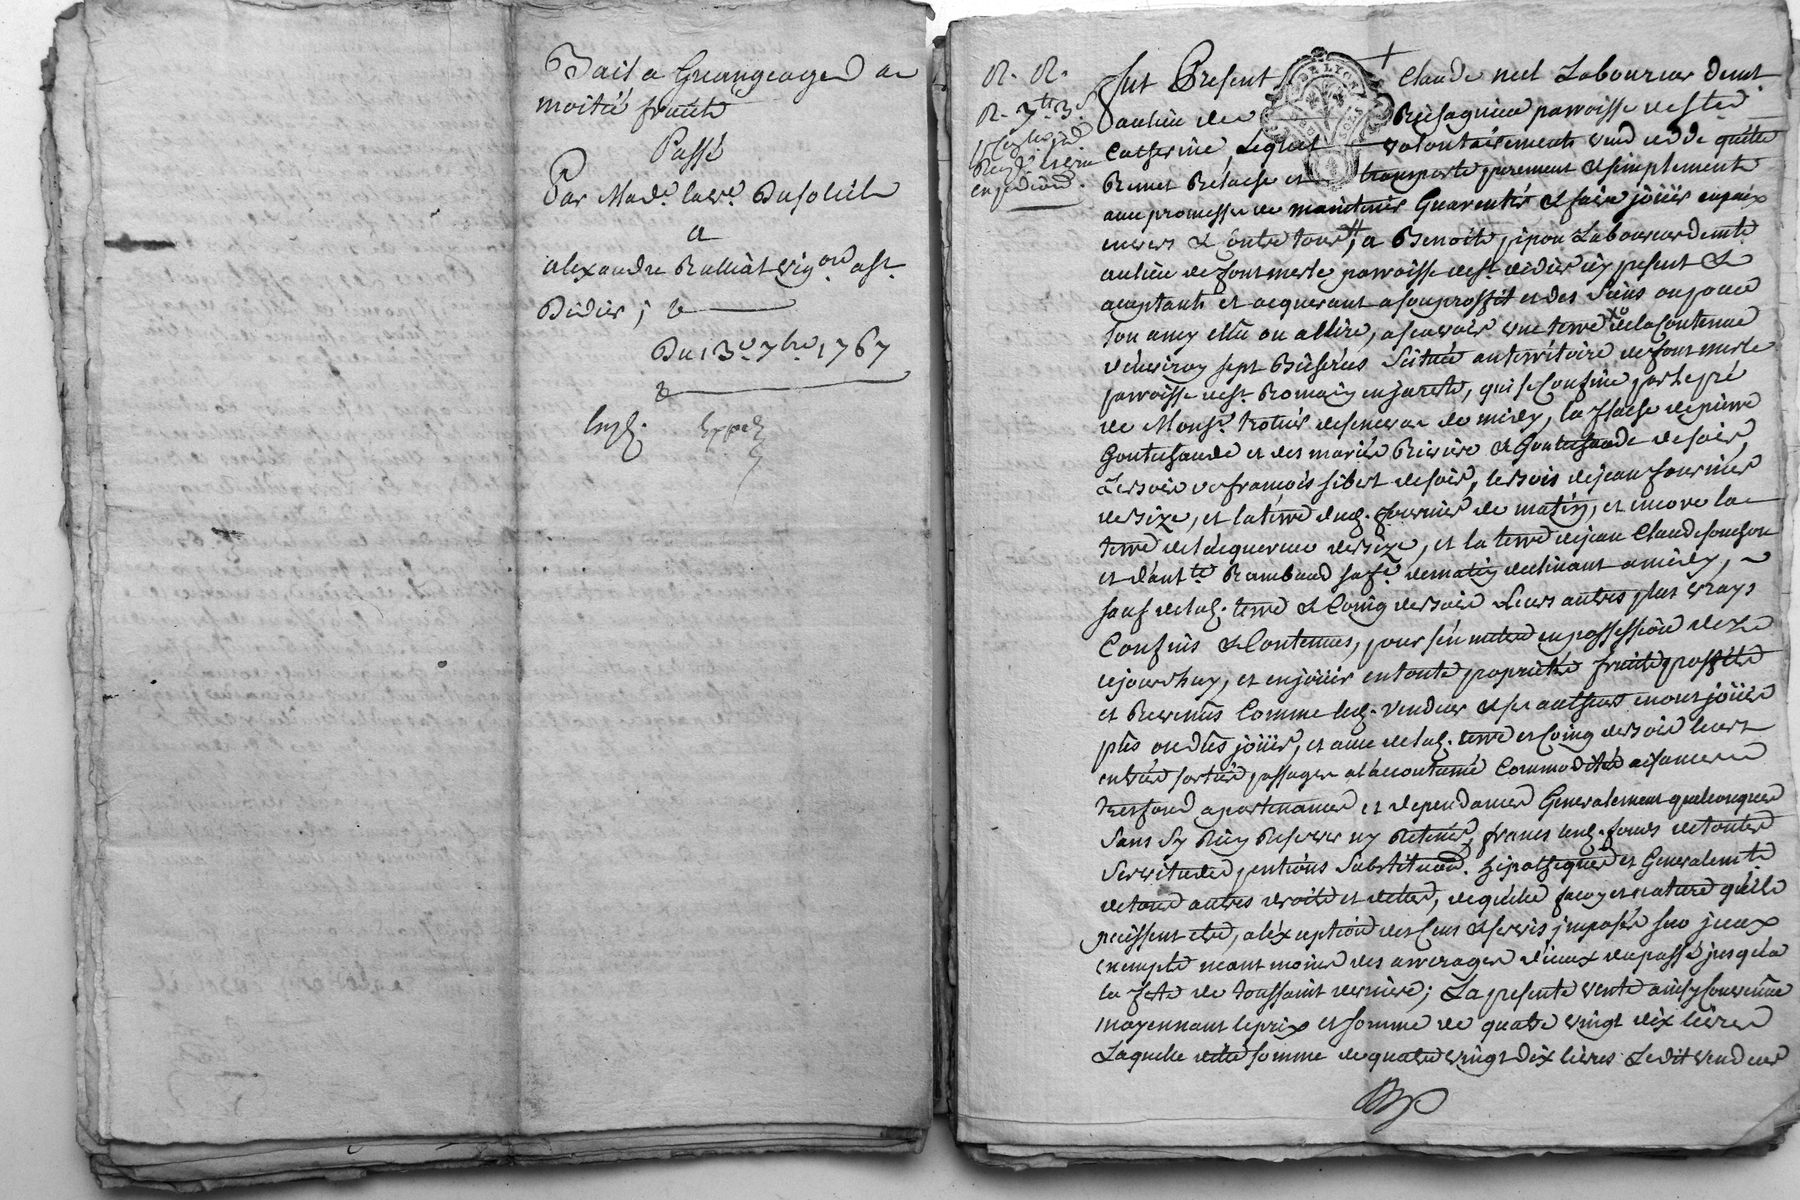 Bail a Grangeage a
moitié fruits
Passé
Par Mad.e la ve. Dusoleil
a
alexandre Ralliat vig.on a st
Didier ; &
Du 13.e 7bre 1767
&
Exp.
R. R.
R. 3tt 3s
fut Present
DE LYON
Claude neel Laboureur demt
au lieu de
paroisse de ste
Catherine, Lequel volontairements vend cede quitte
Remet Relache et transporte purement & simplement
avec promesse de maintenir Guarentir & faire joüir en paix
envers & contre tous, a Benoite pipon Laboureur demte
au lieu de font merle parroisse de st didier icy present &
aceptants et acquerant a son proffit et des Siens ou pour
son amy elû ou a Elire, a scavoir une terre de la Contenue
d'environ sept Bicherées Scituée au territoire de font merle
parroisse de st Romain en jarests, qui se Confine par le pré
de Monsr. de midy, la de pierre
et des mariés Riviere & de soir,
de françois sibert de soir, le bois de jean fournier
de bize, et la terre dud. fournier de matin, et encore la
terre de l'acquereur de bize, et la terre de jean Claude
et d'antte Rambaud sa fe. de matin declinant a midy,
sauf de lad. terre & Coing de soir Leurs autres plus vrays
Confins & Contenues, pour s'en mettre en possession de ce
cejourd'huy, et en joüir en toute proprietté fruits proffits
et Revenus Comme led. vendeur & ses autheurs en ont joüis
pûs ou dûs joüir, et avec de lad. terre et Coing de soir leurs
entrée sortie passages a l'acoutumé Commodités aisances
tresfond apartenances et dependances Generalement quelconques
Sans Sy Rien Reserver ny Retenir, francs led. fonds de toutes
Servitudes, pentions Substituon. hipotheques et Generalemte
de tous autres droits et dettes, de quelle façon et nature qu'ils
puissent etre, a l'exception des Cens & servis imposés sur iceux
exempte neant moins des arrerages d'iceux du passé jusqu'a
la fete de toussaint derniere ; La presente vente ainsy Convenüe
moyennant le prix et somme de quatre vingt dix livres
Laquelle ditte somme de quatre vingt Dix livres Ledit vendeur